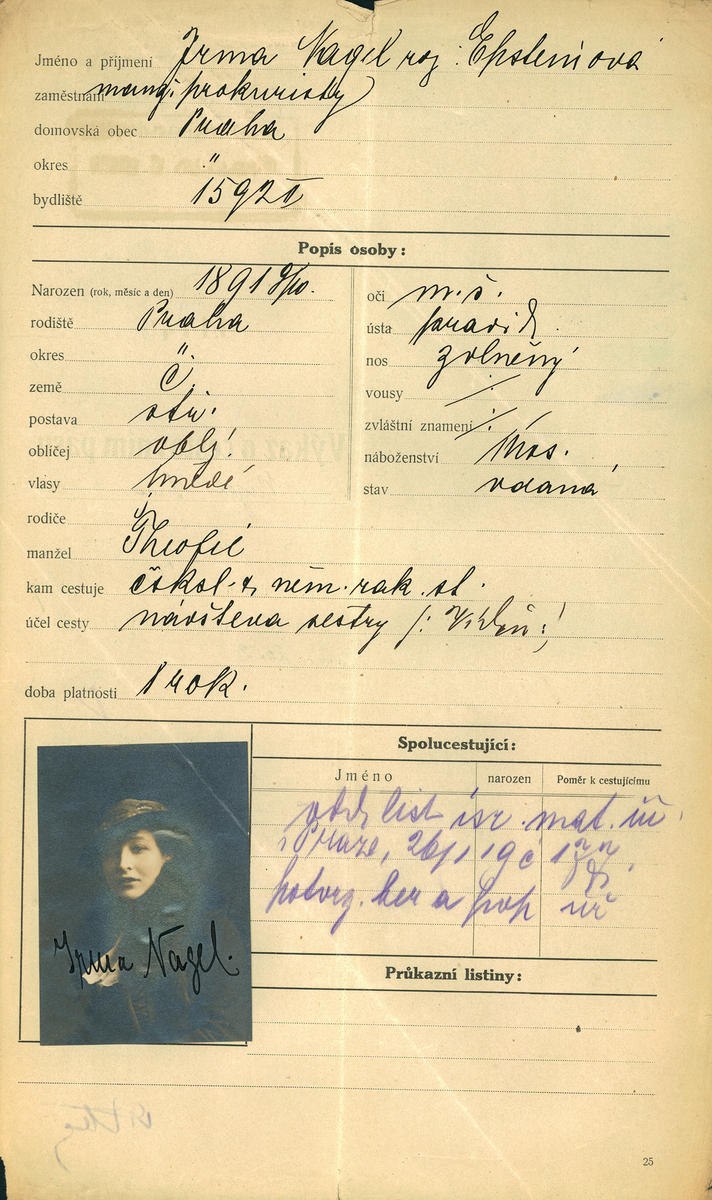 Jméno a příjmení Irma Nagel roz. Epsteinová
zaměstnání manž. prokuristy
domovská obec Praha
okres "
bydliště 1592 II
Popis osoby:
Narozen (rok, měsíc a den) 1891
rodiště Praha
okres "
země Č.
postava stř.
obličej oblý.
vlasy hnědé
rodiče
manžel Theofil
kam cestuje čskol. něm. rak. st.
účel cesty návštěva sestry /: Vídeň :/
doba platnosti 1 rok.
oči m. š.
ústa pravid.
nos zvlněný
vousy ./.
zvláštní znamení ./.
náboženství mos.
stav vdaná
Spolucestující:
Jméno narozen Poměr k cestujícímu
odd. list isr. mat. úř.
Praze,
potvrz. ber a pop úř
Průkazní listiny:
Irma Nagel.
25